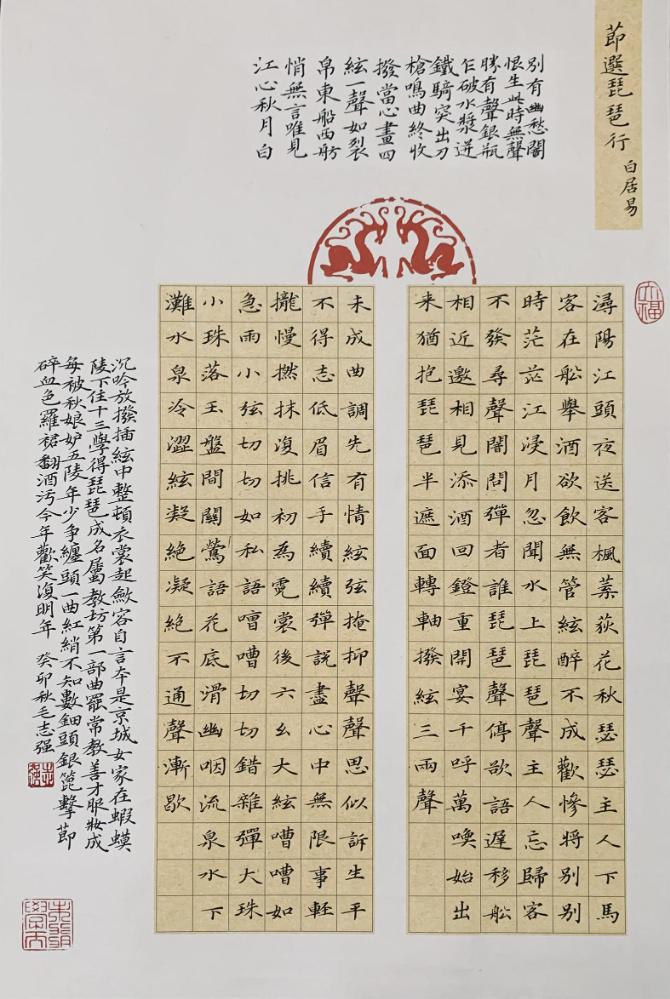 節選琵琶行
白居易
別有幽愁闇
恨生此時無聲
勝有聲銀瓶
乍破水漿迸
鐵騎突出刀
槍鳴曲終收
撥當心畫四
絃一聲如裂
帛東船西舫
悄無言唯見
江心秋月白
潯陽江頭夜送客楓葉荻花秋瑟瑟主人下馬
客在船舉酒欲飲無管絃醉不成歡慘將別別
時茫茫江浸月忽聞水上琵琶聲主人忘歸客
不發尋聲闇問彈者誰琵琶聲停欲語遲移船
相近邀相見添酒回鐙重開宴千呼萬喚始出
来猶抱琵琶半遮面轉軸撥絃三兩聲
未成曲調先有情絃弦掩抑聲聲思似訴生平
不得志低眉信手續續彈說盡心中無限事輕
攏慢撚抹復挑初為霓裳後六幺大絃嘈嘈如
急雨小弦切切如私語嘈嘈切切錯雜彈大珠
小珠落玉盤間關鶯語花底滑幽咽流泉水下
灘水泉冷澀絃凝絕凝絕不通聲漸歇
沉吟放撥插絃中整頓衣裳起斂容自言本是京城女家在蝦蟆
陵下住十三學得琵琶成名屬教坊第一部曲罷常教善才服妝成
每被秋娘妒五陵年少争纏頭一曲紅綃不知數鈿頭銀篦擊節
碎血色羅裙翻酒污今年歡笑復明年 癸卯秋毛志强